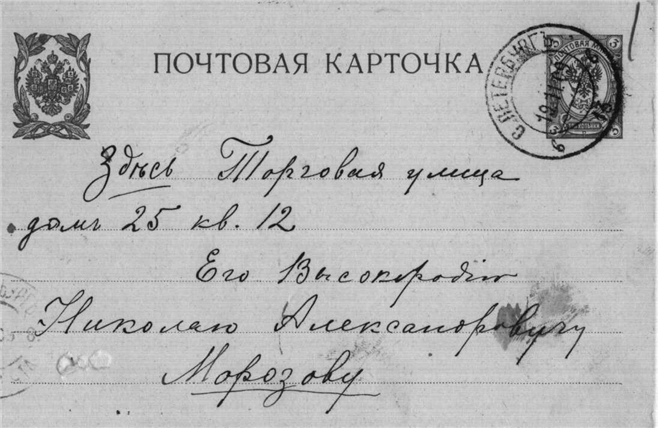 ПОЧТОВАЯ КАРТОЧКА
С. ПЕТЕРБУРГЪ
3
Здѣсь Торговая улица
домъ 25 кв. 12
Его Высокородію
Николаю Александровичу
Морозову